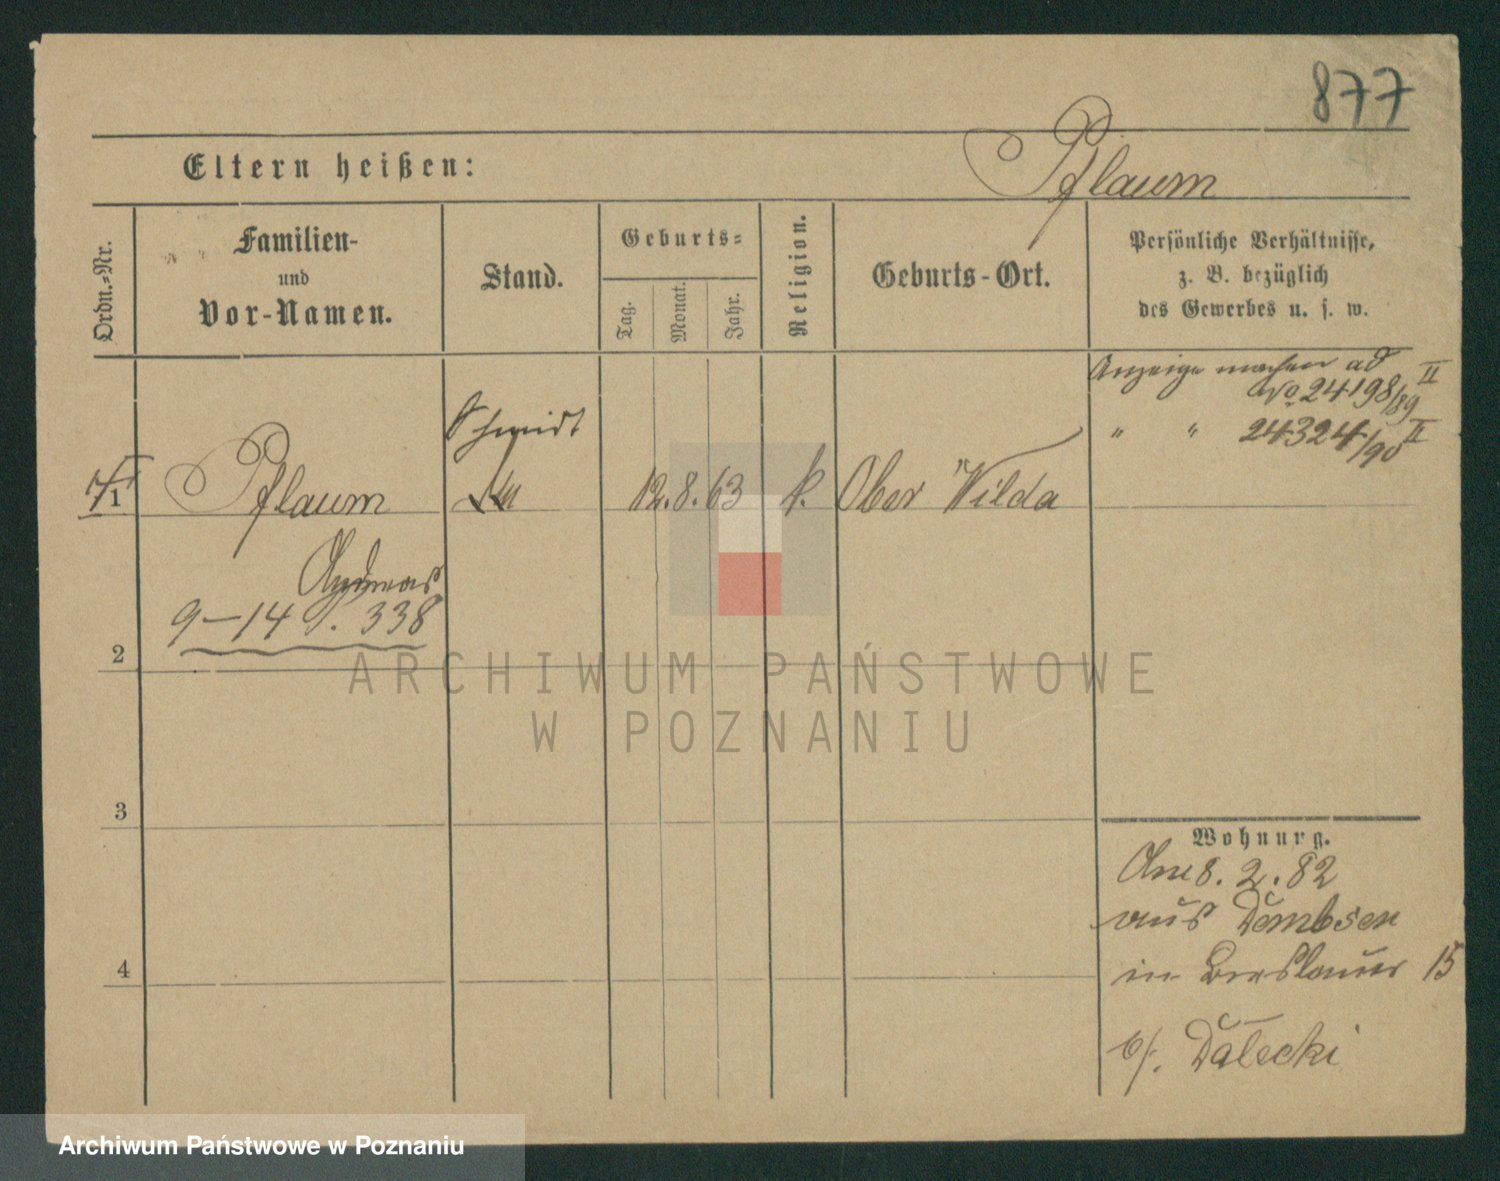 877
Eltern heißen:
Pflaum
Ordn.-Nr.
Familien-
und
Vor-Namen.
Stand.
Geburts-
Tag.
Monat.
Jahr.
Religion.
Geburts-Ort.
Persönliche Verhältnisse,
z. B. bezüglich
des Gewerbes u. s. w.
Anzeige machen ad
No 24198/89 II
" " 24324/90 II
Schmidt
1
Pflaum
12. 8. 63
k.
Ober Wilda
Andreas
9-14 P. 338
2
3
4
Wohnung.
8. 2. 82
aus Dembsen
in Breslauer 15
b/. Dalecki
ARCHIWUM PAŃSTWOWE
W POZNANIU
Archiwum Państwowe w Poznaniu